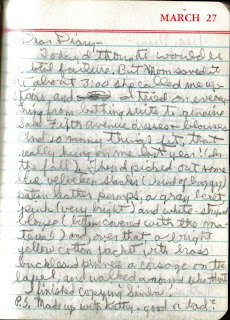 MARCH 27
Dear Diary –
Today I thought would be
total failure. But Mom saved it
about 3:00 she called me up-
stairs and I tried on every
thing from bathing suits to genuine
Saks Fifth Avenue dresses + blouses
And so many things fit, that
really hung on me last year! (or
fall). I had picked out some
velveteen slacks (kind of baggy)
patent leather pumps, a gray + 
pink (very bright) and white striped
blouse (button covered with the ma-
terial) and over that a bright
yellow cotton jacket with brass
buckles and pinned a corsage on the
lapel and walked around like that
I finished copying
P.S. Made up with Kathy – good or bad?